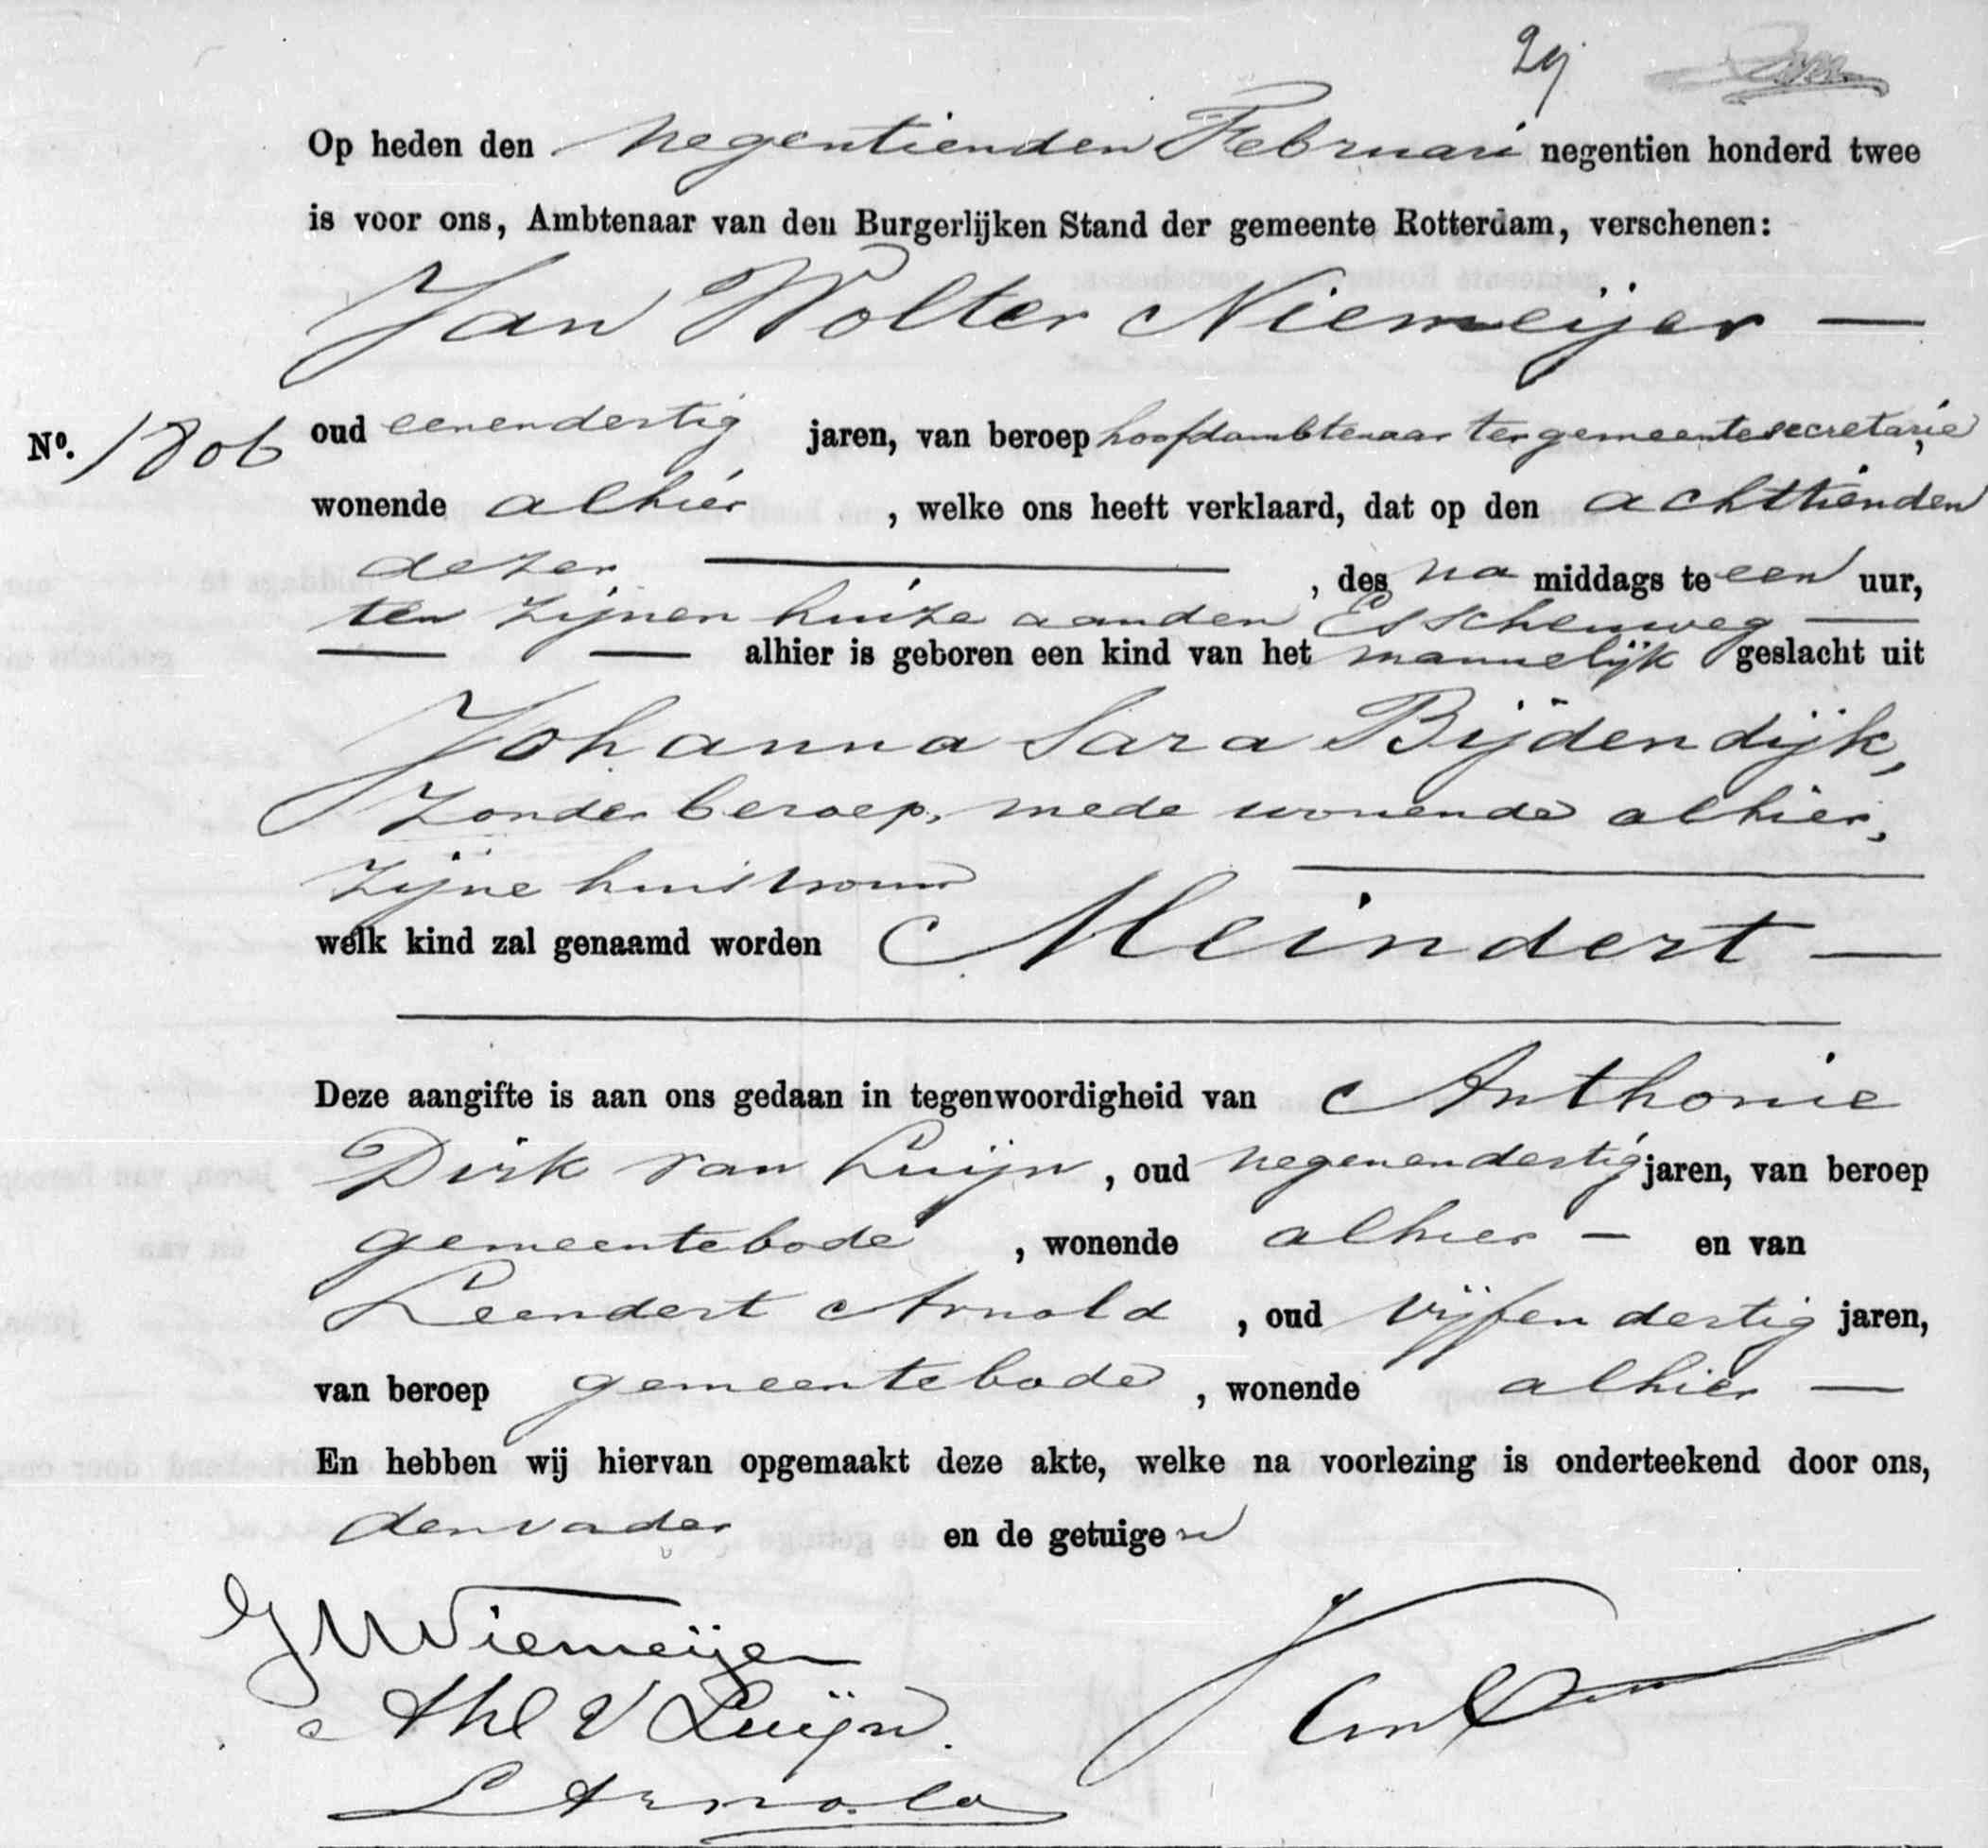 Op heden den negentienden Februari negentien honderd twee
is voor ons, Ambtenaar van den Burgerlijken Stand der gemeente Rotterdam, verschenen:
Jan Wolter Niemeijer —
No. 1806 oud eenendertig jaren, van beroep hoofdambtenaar ter gemeentesecretarie,
wonende alhier, welke ons heeft verklaard, dat op den achttienden
dezer, des na middags te een uur,
ten zijnen huize aanden Esschenweg —
alhier is geboren een kind van het mannelijk geslacht uit
Johanna Sara Bijdendijk,
zonder beroep, mede wonende alhier,
zijne huisvrouw
welk kind zal genaamd worden Meindert —
Deze aangifte is aan ons gedaan in tegenwoordigheid van Anthonie
Dirk van Luijn, oud negenendertig jaren, van beroep
gemeentebode, wonende alhier — en van
Leendert Arnold, oud vijfendertig jaren,
van beroep gemeentebode, wonende alhier —
En hebben wij hiervan opgemaakt deze akte, welke na voorlezing is onderteekend door ons,
den vader en de getuigen
JWNiemeijer
V Luijn.
L Arnold